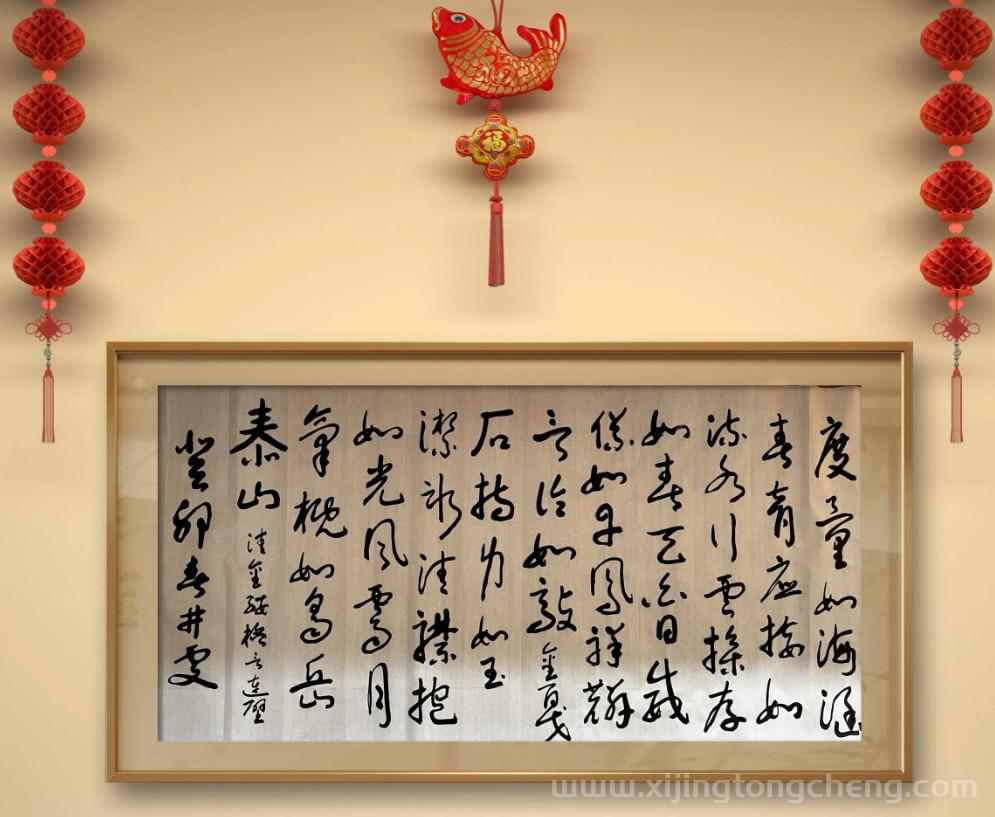 度量如海涵
春育应接如
流水行雲操存
如青天白日威
儀如丹鳳祥麟
言论如敲金戛
石持身如玉
潔冰清襟抱
如光风霽月
氣概如喬岳
泰山 清金缨格言連璧
癸卯春井雯
福
www.xijingtongcheng.com